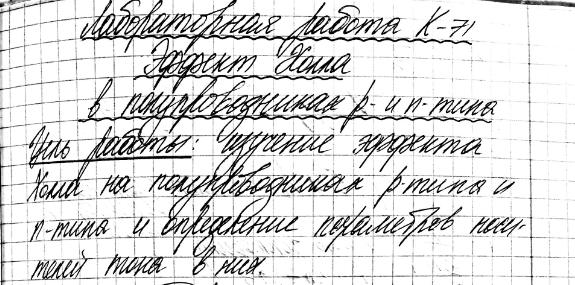 Лабораторная работа К-71
Эффект Холла
в полупроводниках р- и п-типа
Цель работы: изучение эффекта
Холла на полупроводниках р-типа и
п-типа и определение параметров носи-
телей тока в них.